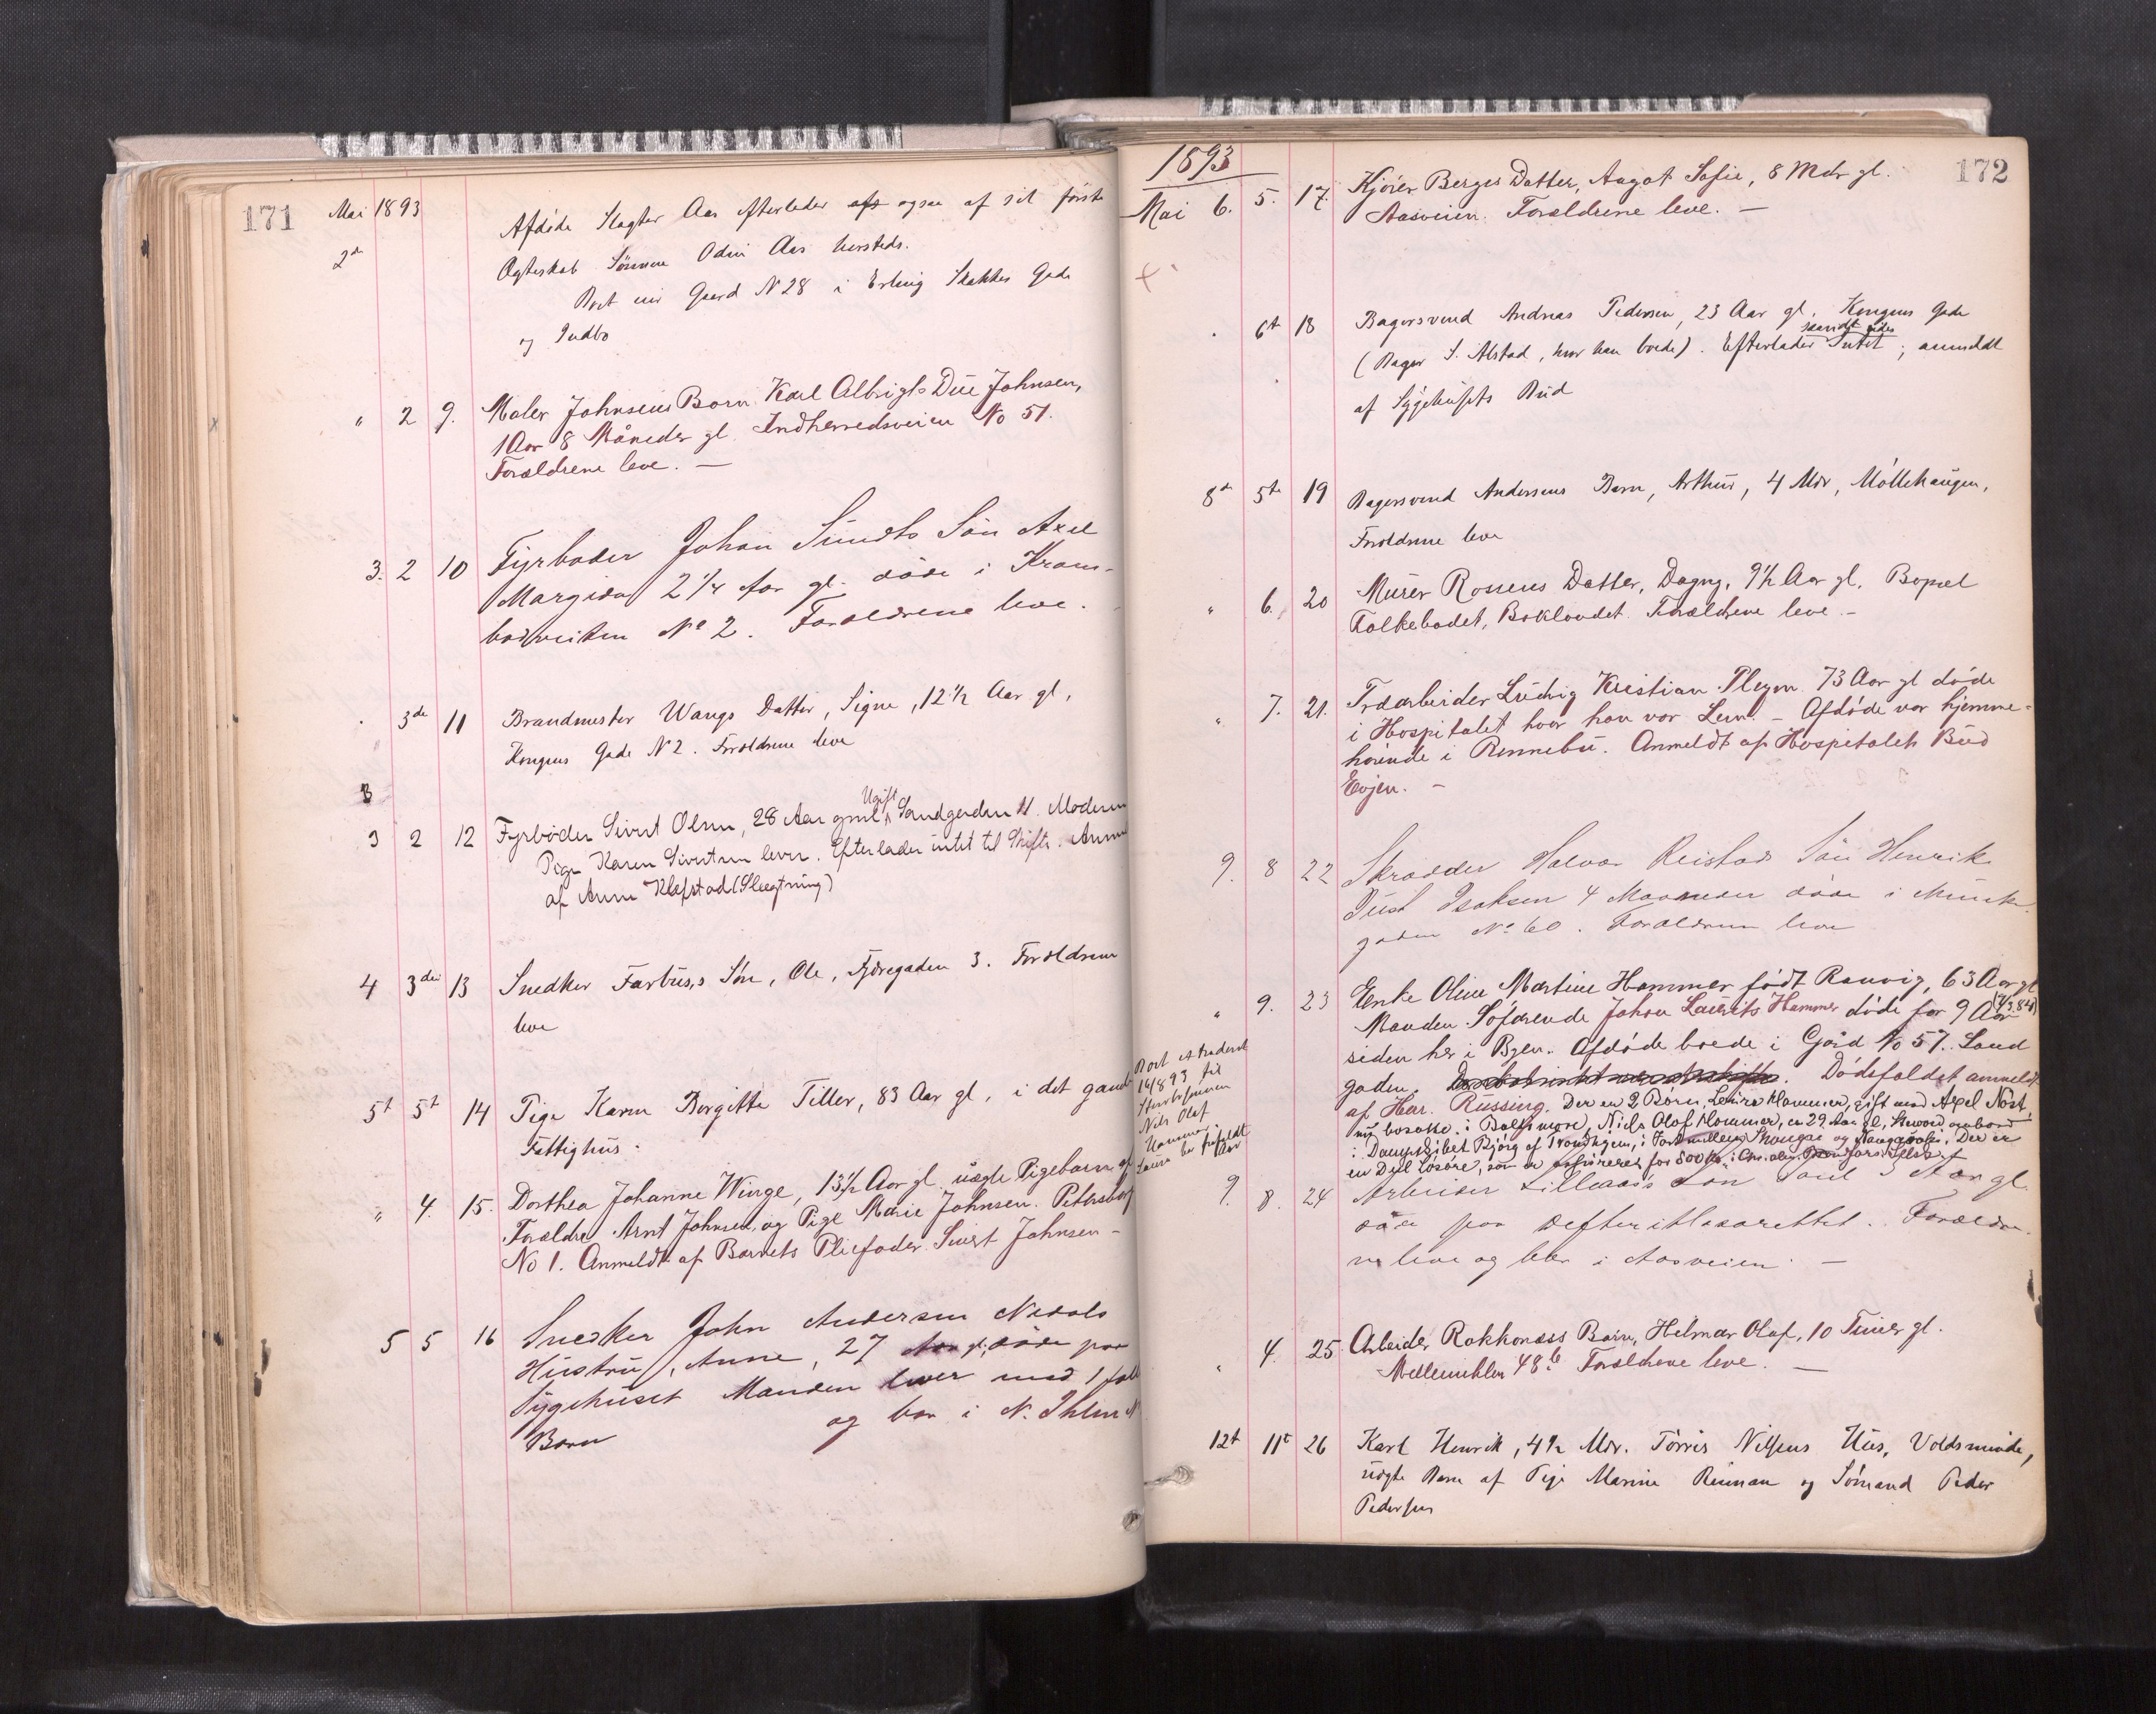 171
Mai 1893
2den
Afdøde Slagter Aas efterlader ogsaa af sit første
Ægteskab Sønnen Odin Aas hersteds.
Boet eier Gaard N 28 i Erling Skakkes Gade
og Indbo
" 2 9. Maler Johnsens Barn Karl Albrigt Due Johnsen,
1 Aar 8 Måneder gl. Indherredsveien No 51.
Forældrene leve. —
3. 2 10 Fyrbøder Johan Sundts Søn Axel
Margido 2 1/4 Aar gl. døde i Kram-
bodveiten No 2. Forældrene leve.
3de 11 Brandmester Wangs Datter, Signe, 12 1/2 Aar gl,
Kongens Gade N 2. Forældrene leve
3 2 12 Fyrbøder Sivert Olsen, 28 Aar gml, Ugift Sandgaden 11. Moderen
Pige Karen Sivertsen lever. Efterlader intet til Skifte. Anm
af Anne Klefstad (Slægtning)
4 3die 13 Snedker Farbus,s Søn, Ole, Fjæregaden 3. Forældrene
leve
5t 5t 14 Pige Karen Birgitte Tiller, 83 Aar gl, i det gamle
Fattighus.
" 4. 15. Dorthea Johanne Winge, 13 1/2 Aar gl uægte Pigebarn af
Forældre Arnt Johnsen og Pige Marie Johnsen. Petersborg
No 1. Anmeldt af Barnets Pliefader Sivert Johnsen —
5 5 16 Snedker John Andersen Nedals
Hustru, Anne, 27 Aar gl, døde paa
Sygehuset Manden lever med 1 fælles
Barn og bor i N. Ihlen N
1893
172
Mai 6. 5. 17. Kjører Berges Datter, Aagot Sofie, 8 Mdr gl.
Aasveien. Forældrene leve. —
6t 18 Bagersvend Andreas Pedersen, 23 Aar gl. Kongens Gade
(Bager S. Alstad, hvor han boede). Efterlader Intet; anmeldt
af Sygehusets Bud
8d 5te 19 Bagersvend Andersens Barn, Arthur, 4 Mdr, Møllehaugen,
Forældrene leve
" 6. 20 Murer Rosens Datter, Dagny, 9 1/2 Aar gl. Bopæl
Folkebadet, Baklandet. Forældrene leve. —
" 7. 21. Træarbeider Ludvig Kristian Plegm 73 Aar gl døde
i Hospitalet hvor han var Lem. — Afdøde var hjemme-
hørende i Rennebu. Anmeldt af Hospitalets Bud
Evjen. —
9. 8 22 Skrædder Halvor Reistads Søn Henrik
Just Isaksen 4 Maaneder døde i Munke-
gaden No 60. Forældrene leve
" 9. 23 Enke Oline Martine Hammer født Ranvig, 63 Aar gl
Manden Søfarende Johan Laurits Hammer døde for 9 Aar
siden her i Byen. Afdøde boede i Gård No 57. Sand
gaden. Dødsfaldet anmeldt
af Har. Russing. Der er 2 Børn, Laura Hammer, gift med Axel Nøst,
nu bosatte i Baltimore, Niels Olaf Hammer, er 29 Aar gl, Steward ombord
i Dampskibet Bjørg af Trondhjem, i Fart mellem Shangai og Nangasaki. Der er
en Del Løsøre, som er assureret for 800 Kr. i
Boet extraderet
14/8 93 til
Stervbosønnen
Nils Olaf
Hammer.
9. 8. 24 Arbeider Lilleaas's Søn Paul 3 Aar gl.
døde paa Defteritlasarettet. Forældre-
ne leve og bor i Aasveien. —
" 4. 25. Arbeider Rokkonæss Barn, Helmer Olaf, 10 Timer gl.
Mellemihlen 48b Forældrene leve. —
12t 11t 26 Karl Henrik, 4 1/2 Mdr. Tørris Nilsens Hus, Voldsminde,
uægte Barn af Pige Marine Reinaas og Sømand Peder
Pedersen